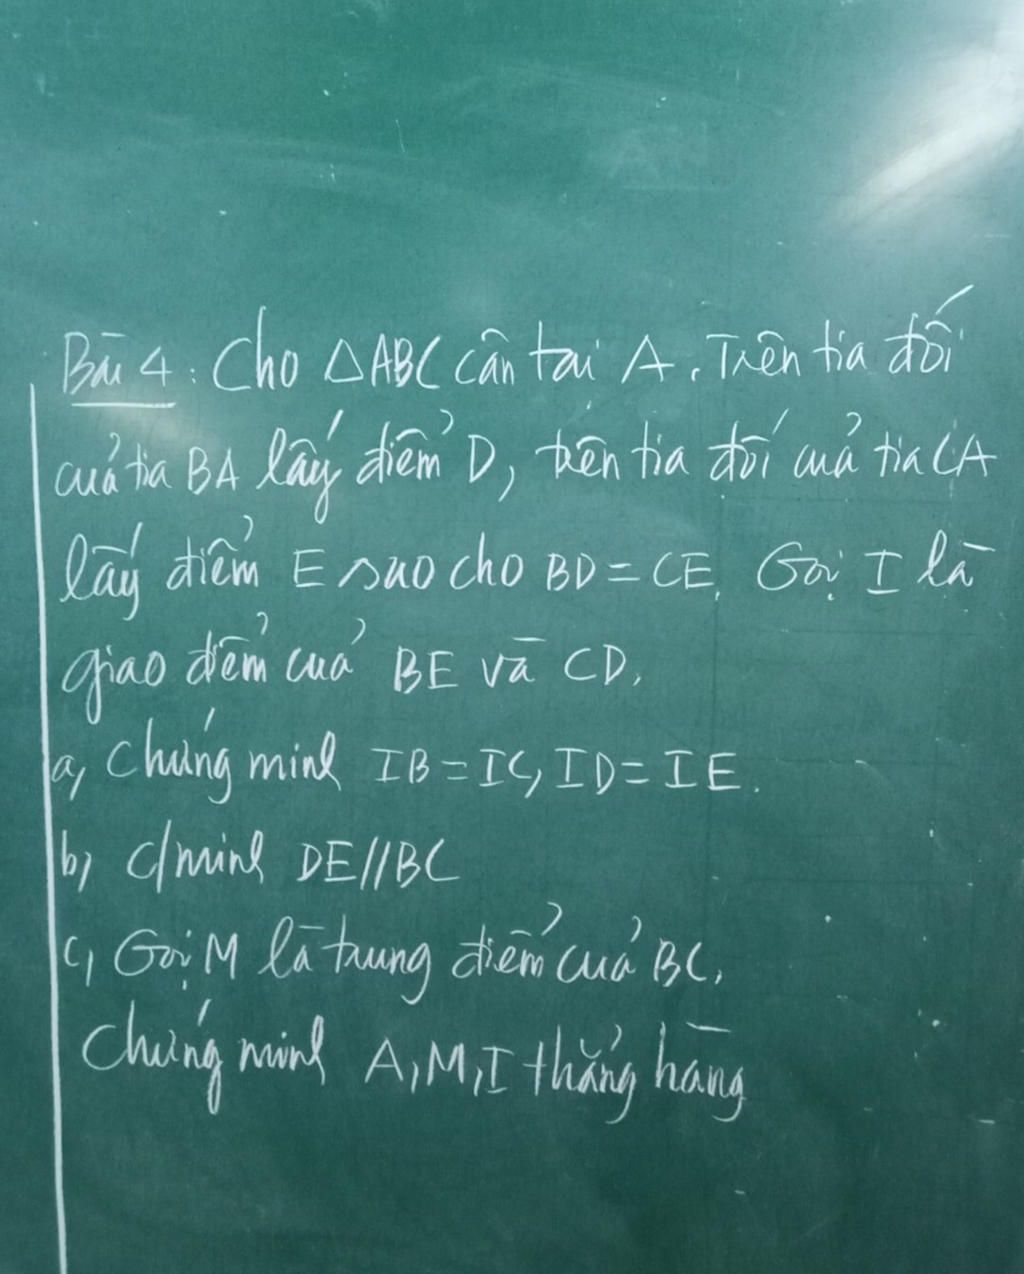 Bài 4: Cho △ABC cân tại A. Trên tia đối
của tia BA lấy điểm D, trên tia đối của tia CA
lấy điểm E sao cho BD = CE. Gọi I là
giao điểm của BE và CD.
a, Chứng minh IB = IC, ID = IE.
b, c/minh DE//BC
c, Gọi M là trung điểm của BC,
Chứng minh A, M, I thẳng hàng